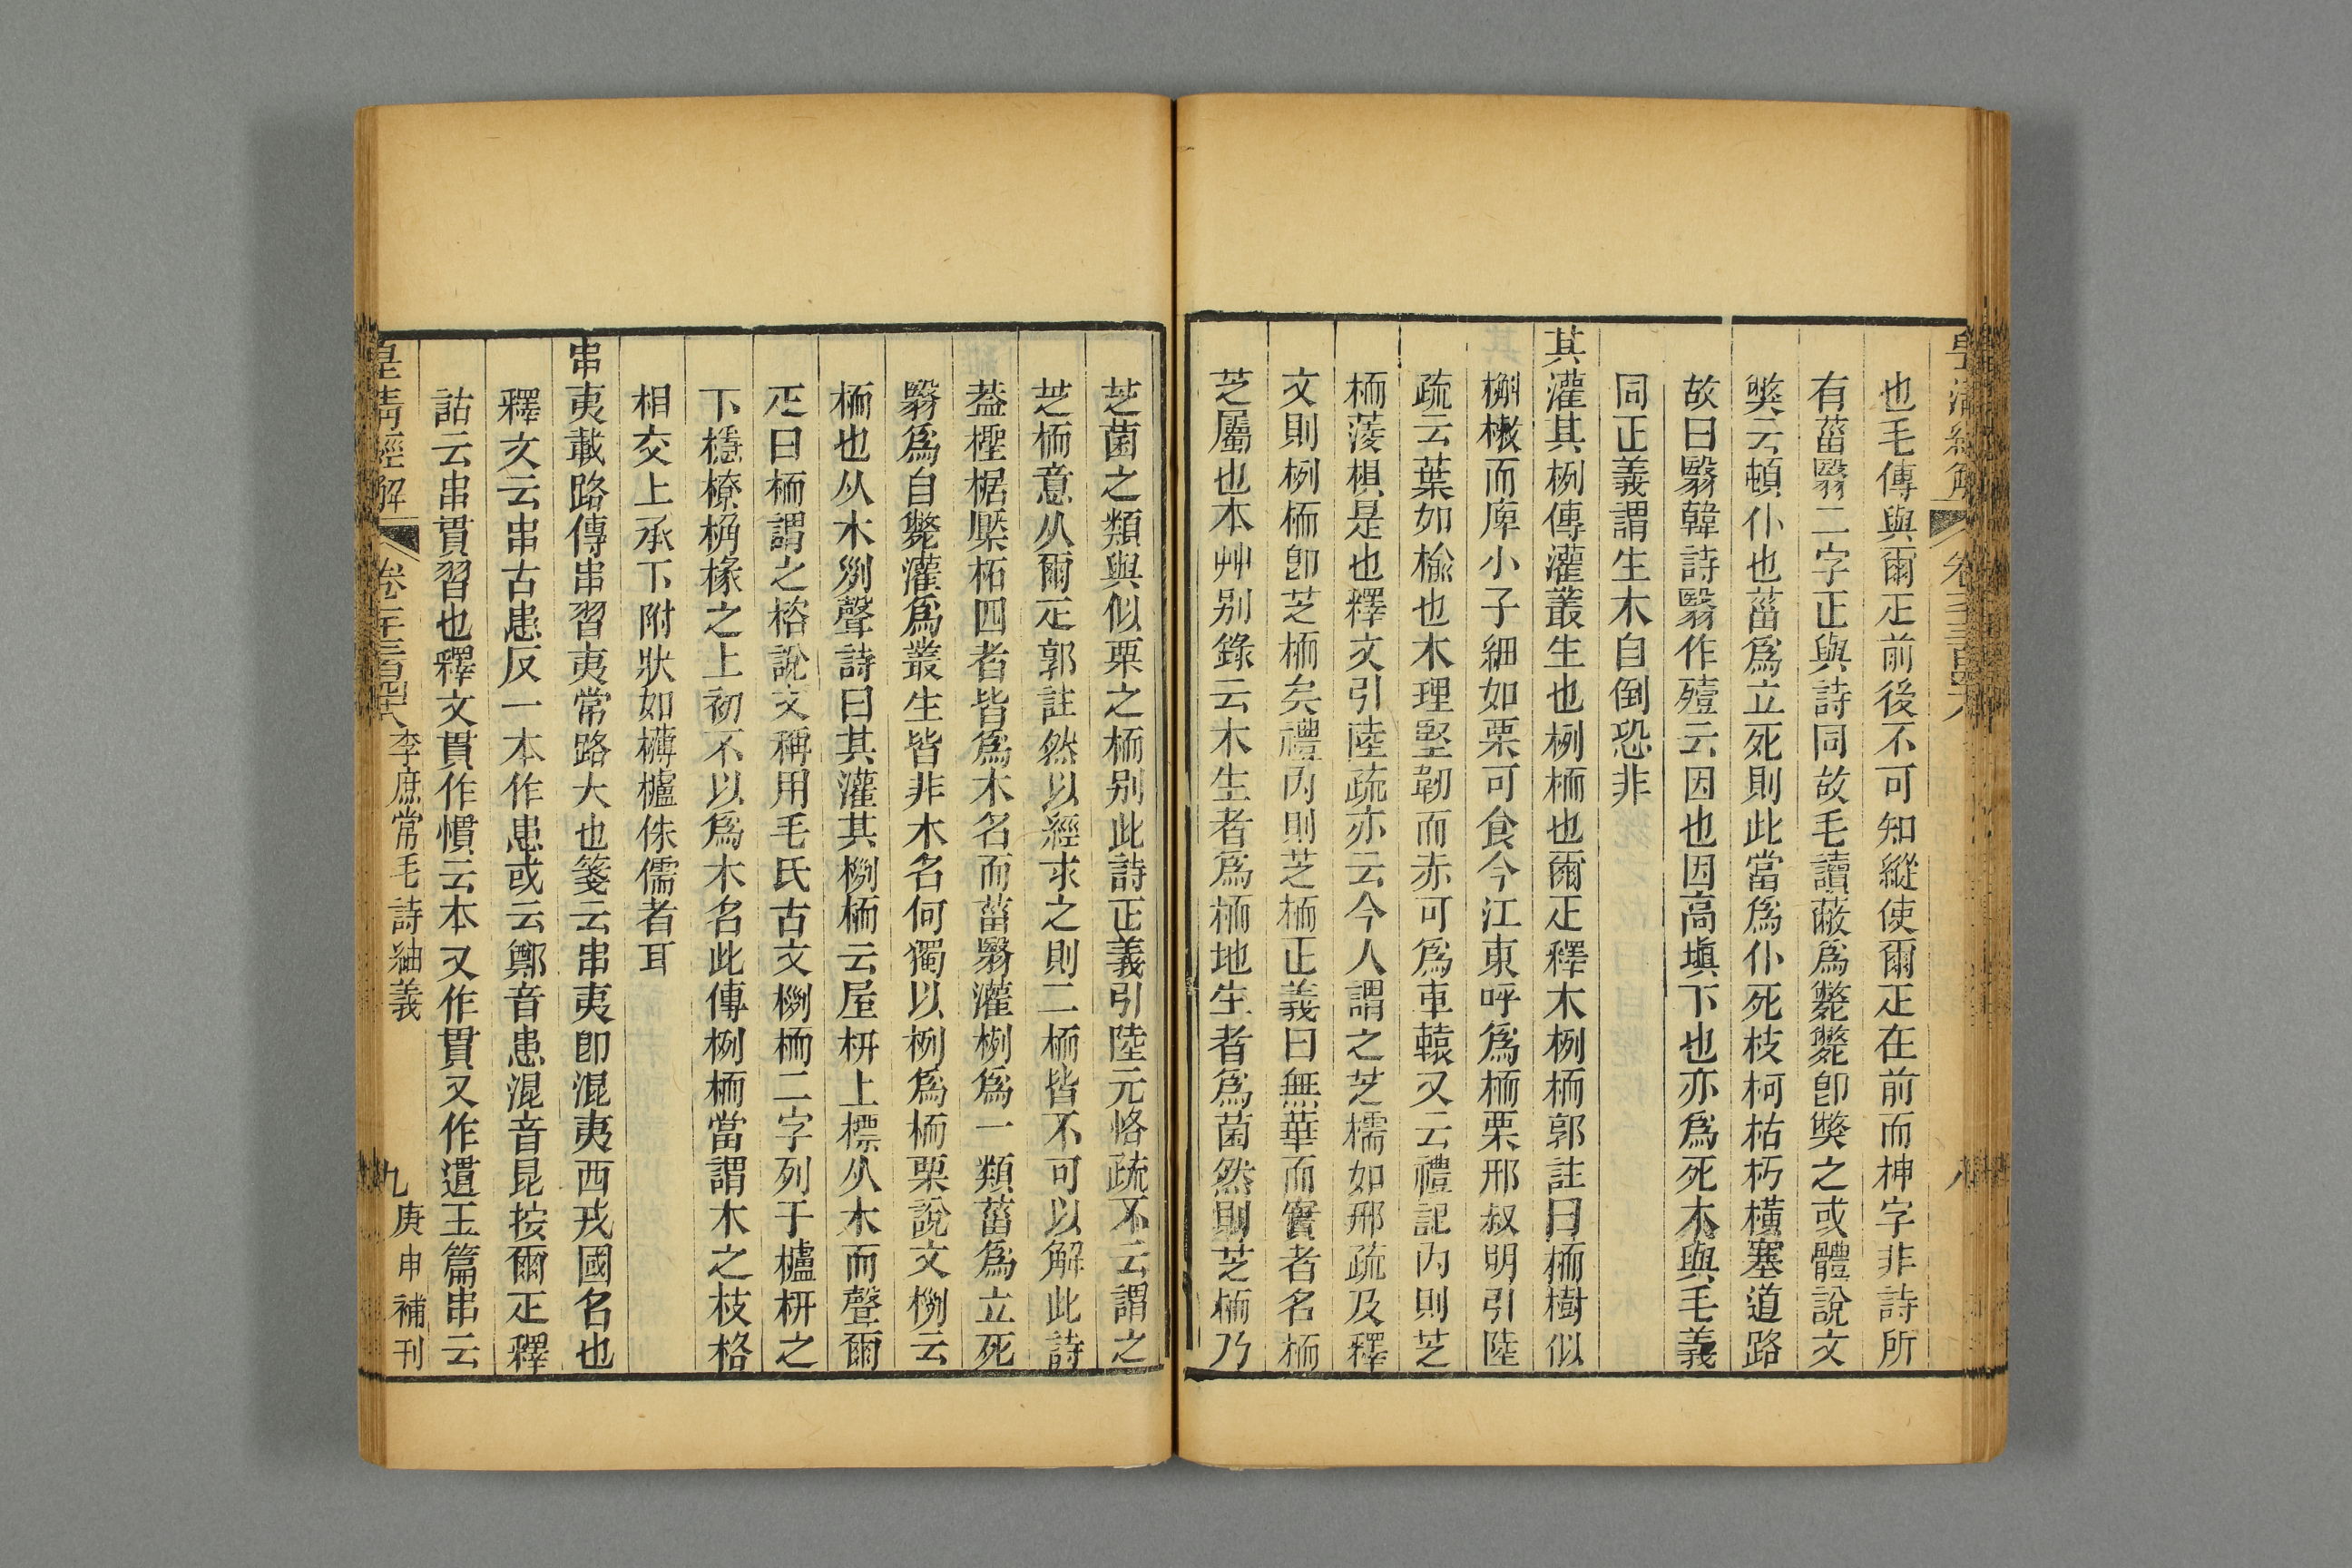 也毛傳與爾疋前後不可知縱使爾疋在前而柛字非詩所
有菑翳二字正與詩同故毛讀蔽爲斃斃卽獘之或體說文
獘云頓仆也菑爲立死則此當爲仆死枝柯枯朽橫塞道路
故曰翳韓詩翳作殪云因也因高塡下也亦爲死木與毛義
同正義謂生木自倒恐非
其灌其栵傳灌叢生也栵栭也爾疋釋木栵栭郭註曰栭樹似
槲樕而庳小子細如栗可食今江東呼爲栭栗邢叔明引陸
疏云葉如榆也木理堅韌而赤可爲車轅又云禮記內則芝
栭蔆椇是也釋文引陸疏亦云今人謂之芝檽如邢疏及釋
文則栵栭卽芝栭矣禮內則芝栭正義曰無華而實者名栭
芝屬也本艸别錄云木生者爲栭地生者爲菌然則芝栭乃
芝菌之類與似栗之栭别此詩正義引陸元恪疏不云謂之
芝栭意从爾疋郭註然以經求之則二栭皆不可以解此詩
葢檉椐檿柘四者皆爲木名而菑翳灌栵爲一類菑爲立死
翳爲自斃灌爲叢生皆非木名何獨以栵爲栭栗說文栵云
栭也从木列聲詩曰其灌其栵栭云屋枅上標从木而聲爾
疋曰栭謂之楶說文稱用毛氏古文栵栭二字列于櫨枅之
下檼橑桷椽之上初不以爲木名此傳栵栭當謂木之枝格
相交上承下附狀如欂櫨侏儒者耳
串夷載路傳串習夷常路大也箋云串夷卽混夷西戎國名也
釋文云串古患反一本作患或云鄭音患混音昆按爾疋釋
詁云串貫習也釋文貫作慣云本又作貫又作遺玉篇串云
皇清經解 卷一千三百四十八 李庶常毛詩紬義 九 庚申補刊